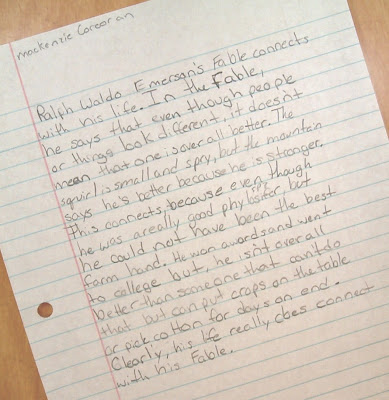 Mackenzie Corcoran
Ralph Waldo Emerson's Fable connects
with his life. In the Fable,
he says that even though people
or things look different, it doesn't
mean that one is over all better. The
squirl is small and spry, but the mountain
says he's better because he is stronger.
This connects, because even though
he was a really good but
he could not have been the best
farm hand. He won awards and went
to college but, he isn't over all
better than someone that can't do
that but can put crops on the table
or pick cotton for days on end.
Clearly, his life really does connect
with his Fable.